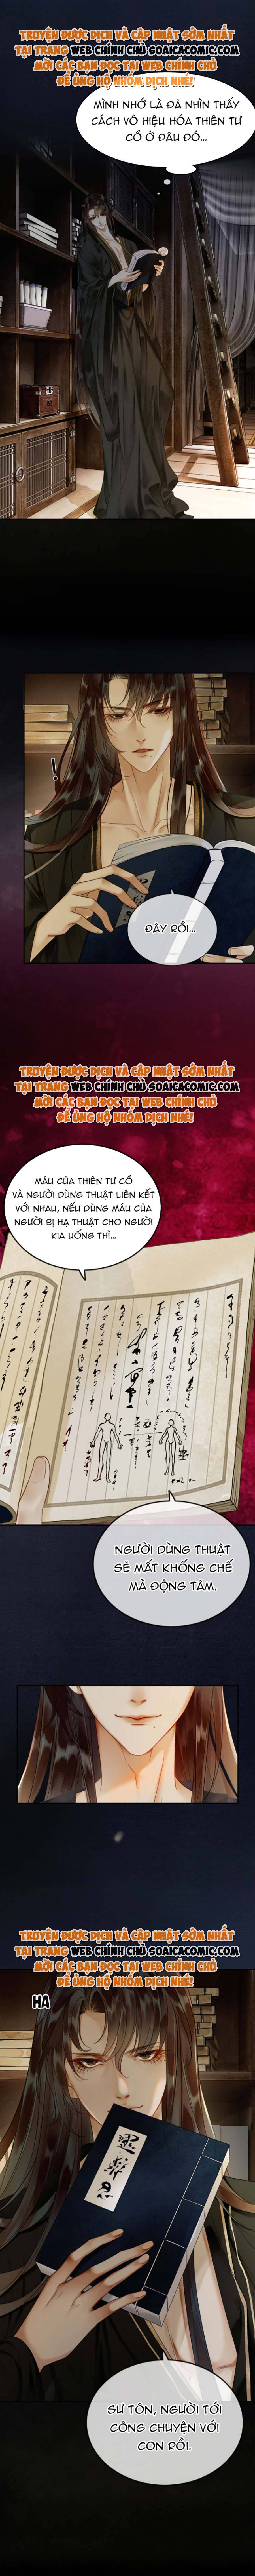 TRUYỆN ĐƯỢC DỊCH VÀ CẬP NHẬT SỚM NHẤT
TẠI TRANG WEB CHÍNH CHỦ SOAICACOMIC.COM
MỜI CÁC BẠN ĐỌC TẠI WEB CHÍNH CHỦ
ĐỂ ỦNG HỘ NHÓM DỊCH NHÉ!
MÌNH NHỚ LÀ ĐÃ NHÌN THẤY
CÁCH VÔ HIỆU HÓA THIÊN TƯ
CỔ Ở ĐÂU ĐÓ...
!
ĐÂY RỒI...
TRUYỆN ĐƯỢC DỊCH VÀ CẬP NHẬT SỚM NHẤT
TẠI TRANG WEB CHÍNH CHỦ SOAICACOMIC.COM
MỜI CÁC BẠN ĐỌC TẠI WEB CHÍNH CHỦ
ĐỂ ỦNG HỘ NHÓM DỊCH NHÉ!
MÁU CỦA THIÊN TƯ CỔ
VÀ NGƯỜI DÙNG THUẬT LIÊN KẾT
VỚI NHAU, NẾU DÙNG MÁU CỦA
NGƯỜI BỊ HẠ THUẬT CHO NGƯỜI
KIA UỐNG THÌ...
NGƯỜI DÙNG THUẬT
SẼ MẤT KHỐNG CHẾ
MÀ ĐỘNG TÂM.
TRUYỆN ĐƯỢC DỊCH VÀ CẬP NHẬT SỚM NHẤT
TẠI TRANG WEB CHÍNH CHỦ SOAICACOMIC.COM
MỜI CÁC BẠN ĐỌC TẠI WEB CHÍNH CHỦ
ĐỂ ỦNG HỘ NHÓM DỊCH NHÉ!
HA
SƯ TÔN, NGƯỜI TỚI
CÔNG CHUYỆN VỚI
CON RỒI.